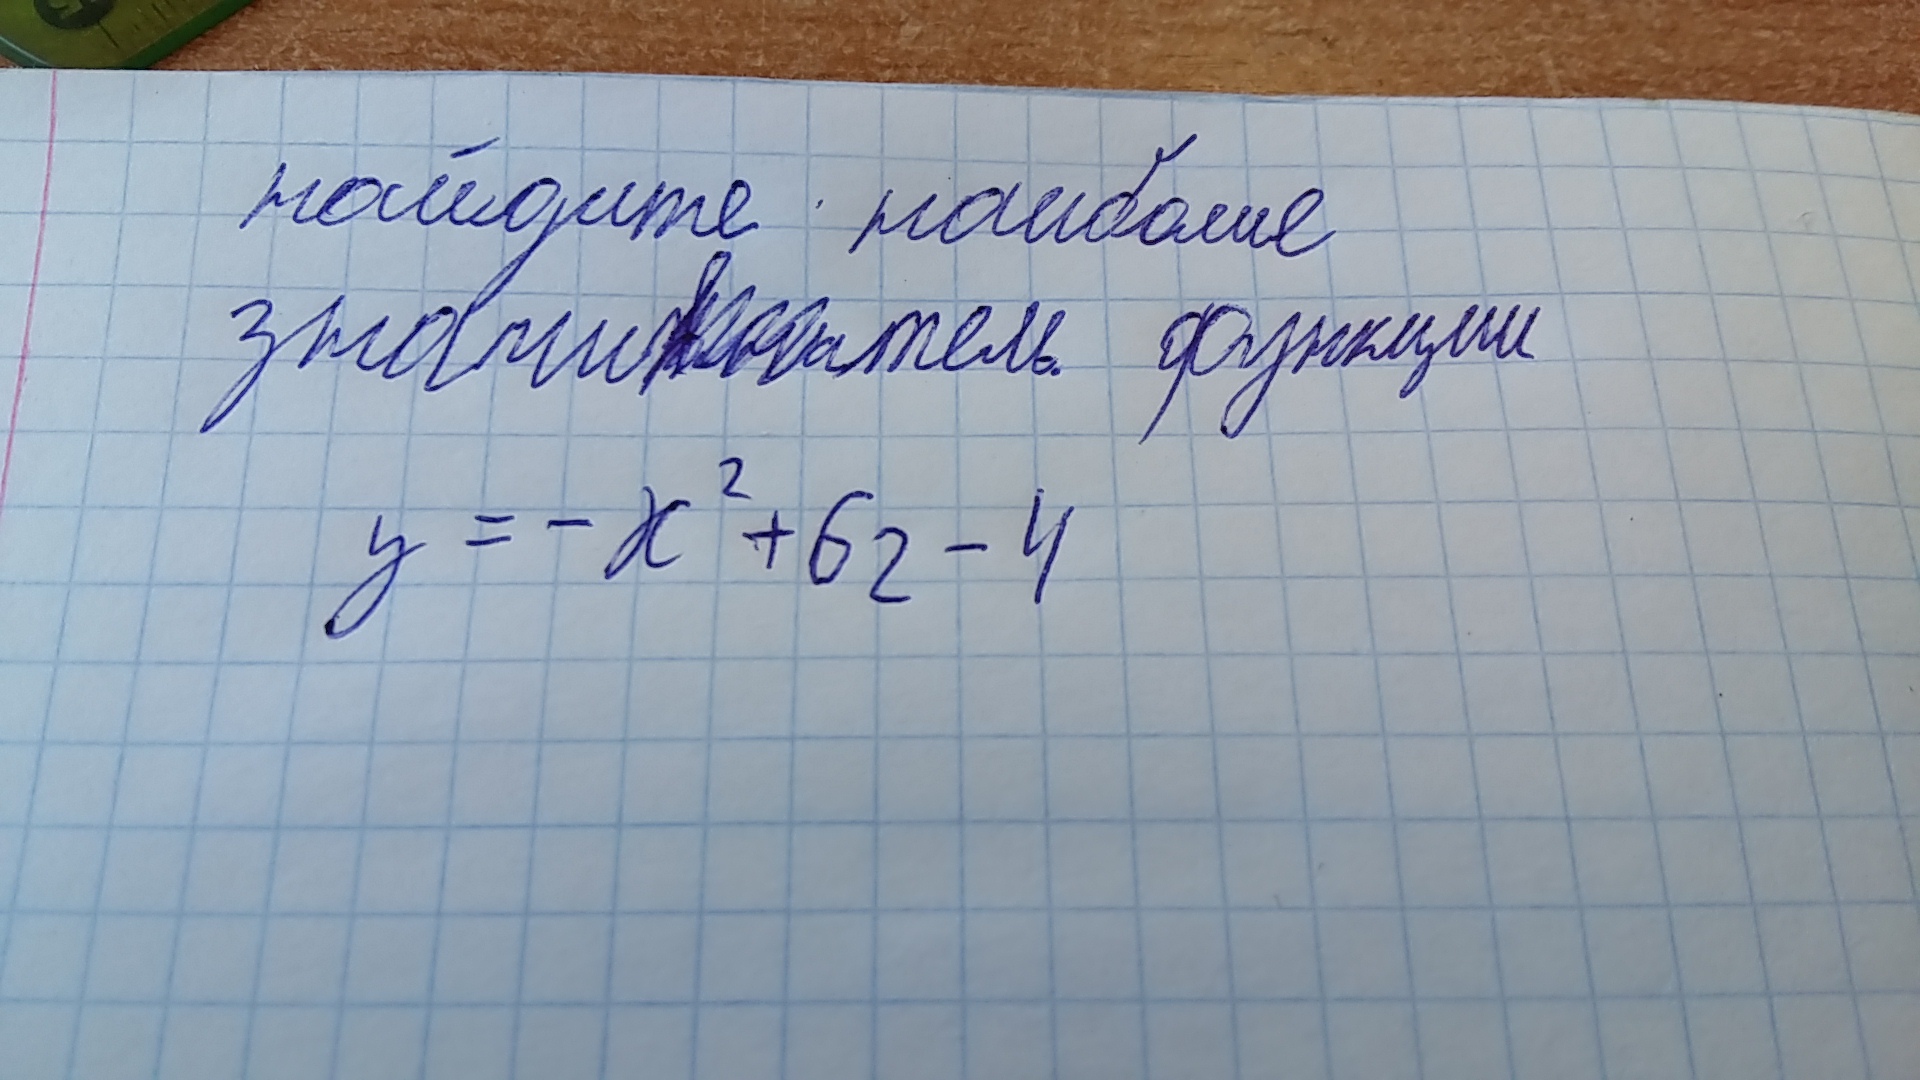 найдите наиболие
значиватель функции
y = -x² + 6z - 4